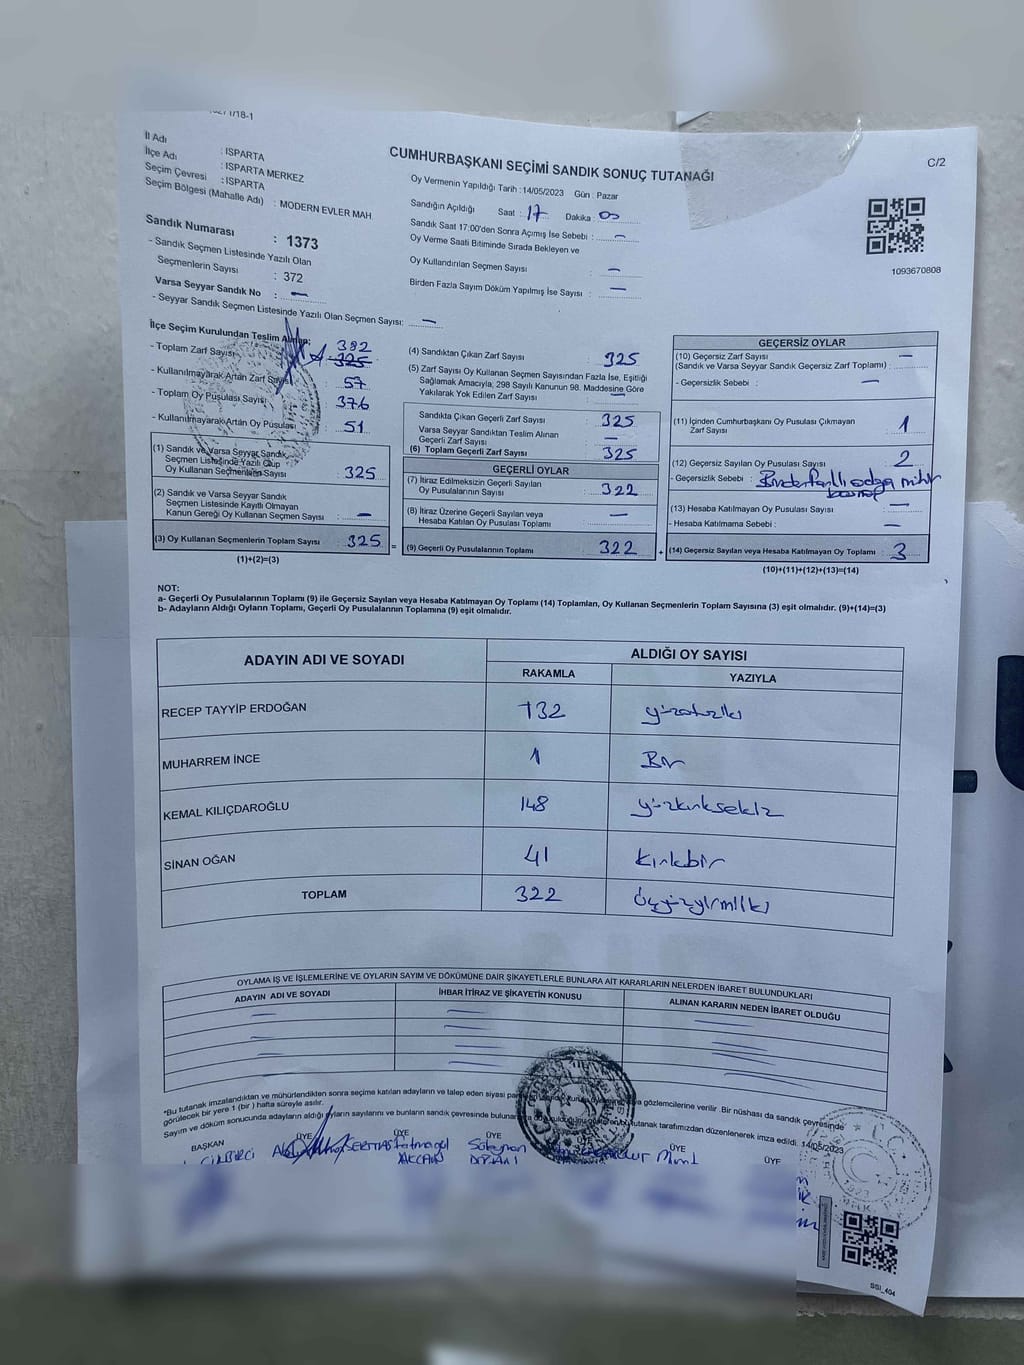 C/2
İl Adı : ISPARTA
İlçe Adı : ISPARTA MERKEZ
Seçim Çevresi : ISPARTA
Seçim Bölgesi (Mahalle Adı) : MODERN EVLER MAH.
Sandık Numarası : 1373
- Sandık Seçmen Listesinde Yazılı Olan
Seçmenlerin Sayısı : 372
Varsa Seyyar Sandık No : —
- Seyyar Sandık Seçmen Listesinde Yazılı Olan Seçmen Sayısı: —
CUMHURBAŞKANI SEÇİMİ SANDIK SONUÇ TUTANAĞI
Oy Vermenin Yapıldığı Tarih : 14/05/2023 Gün : Pazar
Sandığın Açıldığı Saat : 17 Dakika : 00
Sandık Saat 17:00'den Sonra Açımış İse Sebebi : —
Oy Verme Saati Bitiminde Sırada Bekleyen ve
Oy Kullandırılan Seçmen Sayısı : —
Birden Fazla Sayım Döküm Yapılmış İse Sayısı : —
1093670808
İlçe Seçim Kurulundan Teslim Alınan;
382
- Toplam Zarf Sayısı 325
- Kullanılmayarak Artan Zarf Sayısı 57
- Toplam Oy Pusulası Sayısı 376
- Kullanılmayarak Artan Oy Pusulası 51
(1) Sandık ve Varsa Seyyar Sandık
Seçmen Listesinde Yazılı Olup
Oy Kullanan Seçmenlerin Sayısı : 325
(2) Sandık ve Varsa Seyyar Sandık
Seçmen Listesinde Kayıtlı Olmayan
Kanun Gereği Oy Kullanan Seçmen Sayısı : —
(3) Oy Kullanan Seçmenlerin Toplam Sayısı : 325
(1)+(2)=(3)
(4) Sandıktan Çıkan Zarf Sayısı : 325
(5) Zarf Sayısı Oy Kullanan Seçmen Sayısından Fazla İse, Eşitliği
Sağlamak Amacıyla, 298 Sayılı Kanunun 98. Maddesine Göre
Yakılarak Yok Edilen Zarf Sayısı : —
Sandıkta Çıkan Geçerli Zarf Sayısı : 325
Varsa Seyyar Sandıktan Teslim Alınan
Geçerli Zarf Sayısı : —
(6) Toplam Geçerli Zarf Sayısı : 325
GEÇERLİ OYLAR
(7) İtiraz Edilmeksizin Geçerli Sayılan
Oy Pusulalarının Sayısı : 322
(8) İtiraz Üzerine Geçerli Sayılan veya
Hesaba Katılan Oy Pusulası Toplamı : —
= (9) Geçerli Oy Pusulalarının Toplamı : 322
GEÇERSİZ OYLAR
(10) Geçersiz Zarf Sayısı
(Sandık ve Varsa Seyyar Sandık Geçersiz Zarf Toplamı) : —
- Geçersizlik Sebebi : —
(11) İçinden Cumhurbaşkanı Oy Pusulası Çıkmayan
Zarf Sayısı : 1
(12) Geçersiz Sayılan Oy Pusulası Sayısı : 2
- Geçersizlik Sebebi :
(13) Hesaba Katılmayan Oy Pusulası Sayısı : —
- Hesaba Katılmama Sebebi : —
+ (14) Geçersiz Sayılan veya Hesaba Katılmayan Oy Toplamı : 3
(10)+(11)+(12)+(13)=(14)
NOT:
a- Geçerli Oy Pusulalarının Toplamı (9) ile Geçersiz Sayılan veya Hesaba Katılmayan Oy Toplamı (14) Toplamları, Oy Kullanan Seçmenlerin Toplam Sayısına (3) eşit olmalıdır. (9)+(14)=(3)
b- Adayların Aldığı Oyların Toplamı, Geçerli Oy Pusulalarının Toplamına (9) eşit olmalıdır.
ADAYIN ADI VE SOYADI
ALDIĞI OY SAYISI
RAKAMLA YAZIYLA
RECEP TAYYİP ERDOĞAN 132 yüzotuziki
MUHARREM İNCE 1 Bir
KEMAL KILIÇDAROĞLU 148 yüzkırksekiz
SİNAN OĞAN 41 kırkbir
TOPLAM 322 üçyüzyirmiiki
OYLAMA İŞ VE İŞLEMLERİNE VE OYLARIN SAYIM VE DÖKÜMÜNE DAİR ŞİKAYETLERLE BUNLARA AİT KARARLARIN NELERDEN İBARET BULUNDUKLARI
ADAYIN ADI VE SOYADI İHBAR İTİRAZ VE ŞİKAYETİN KONUSU ALINAN KARARIN NEDEN İBARET OLDUĞU
*Bu tutanak imzalandıktan ve mühürlendikten sonra seçime katılan adayların ve talep eden siyasi gözlemcilerine verilir .Bir nüshası da sandık çevresinde
görülecek bir yere 1 (bir ) hafta süreyle asılır.
Sayım ve döküm sonucunda adayların aldığı oyların sayılarını ve bunların sandık çevresinde tutanak tarafımızdan düzenlenerek imza edildi. 14/05/2023
BAŞKAN ÜYE ÜYE ÜYE ÜYE ÜYE ÜYE
Fatmagül Süleyman Murat
SSI_404